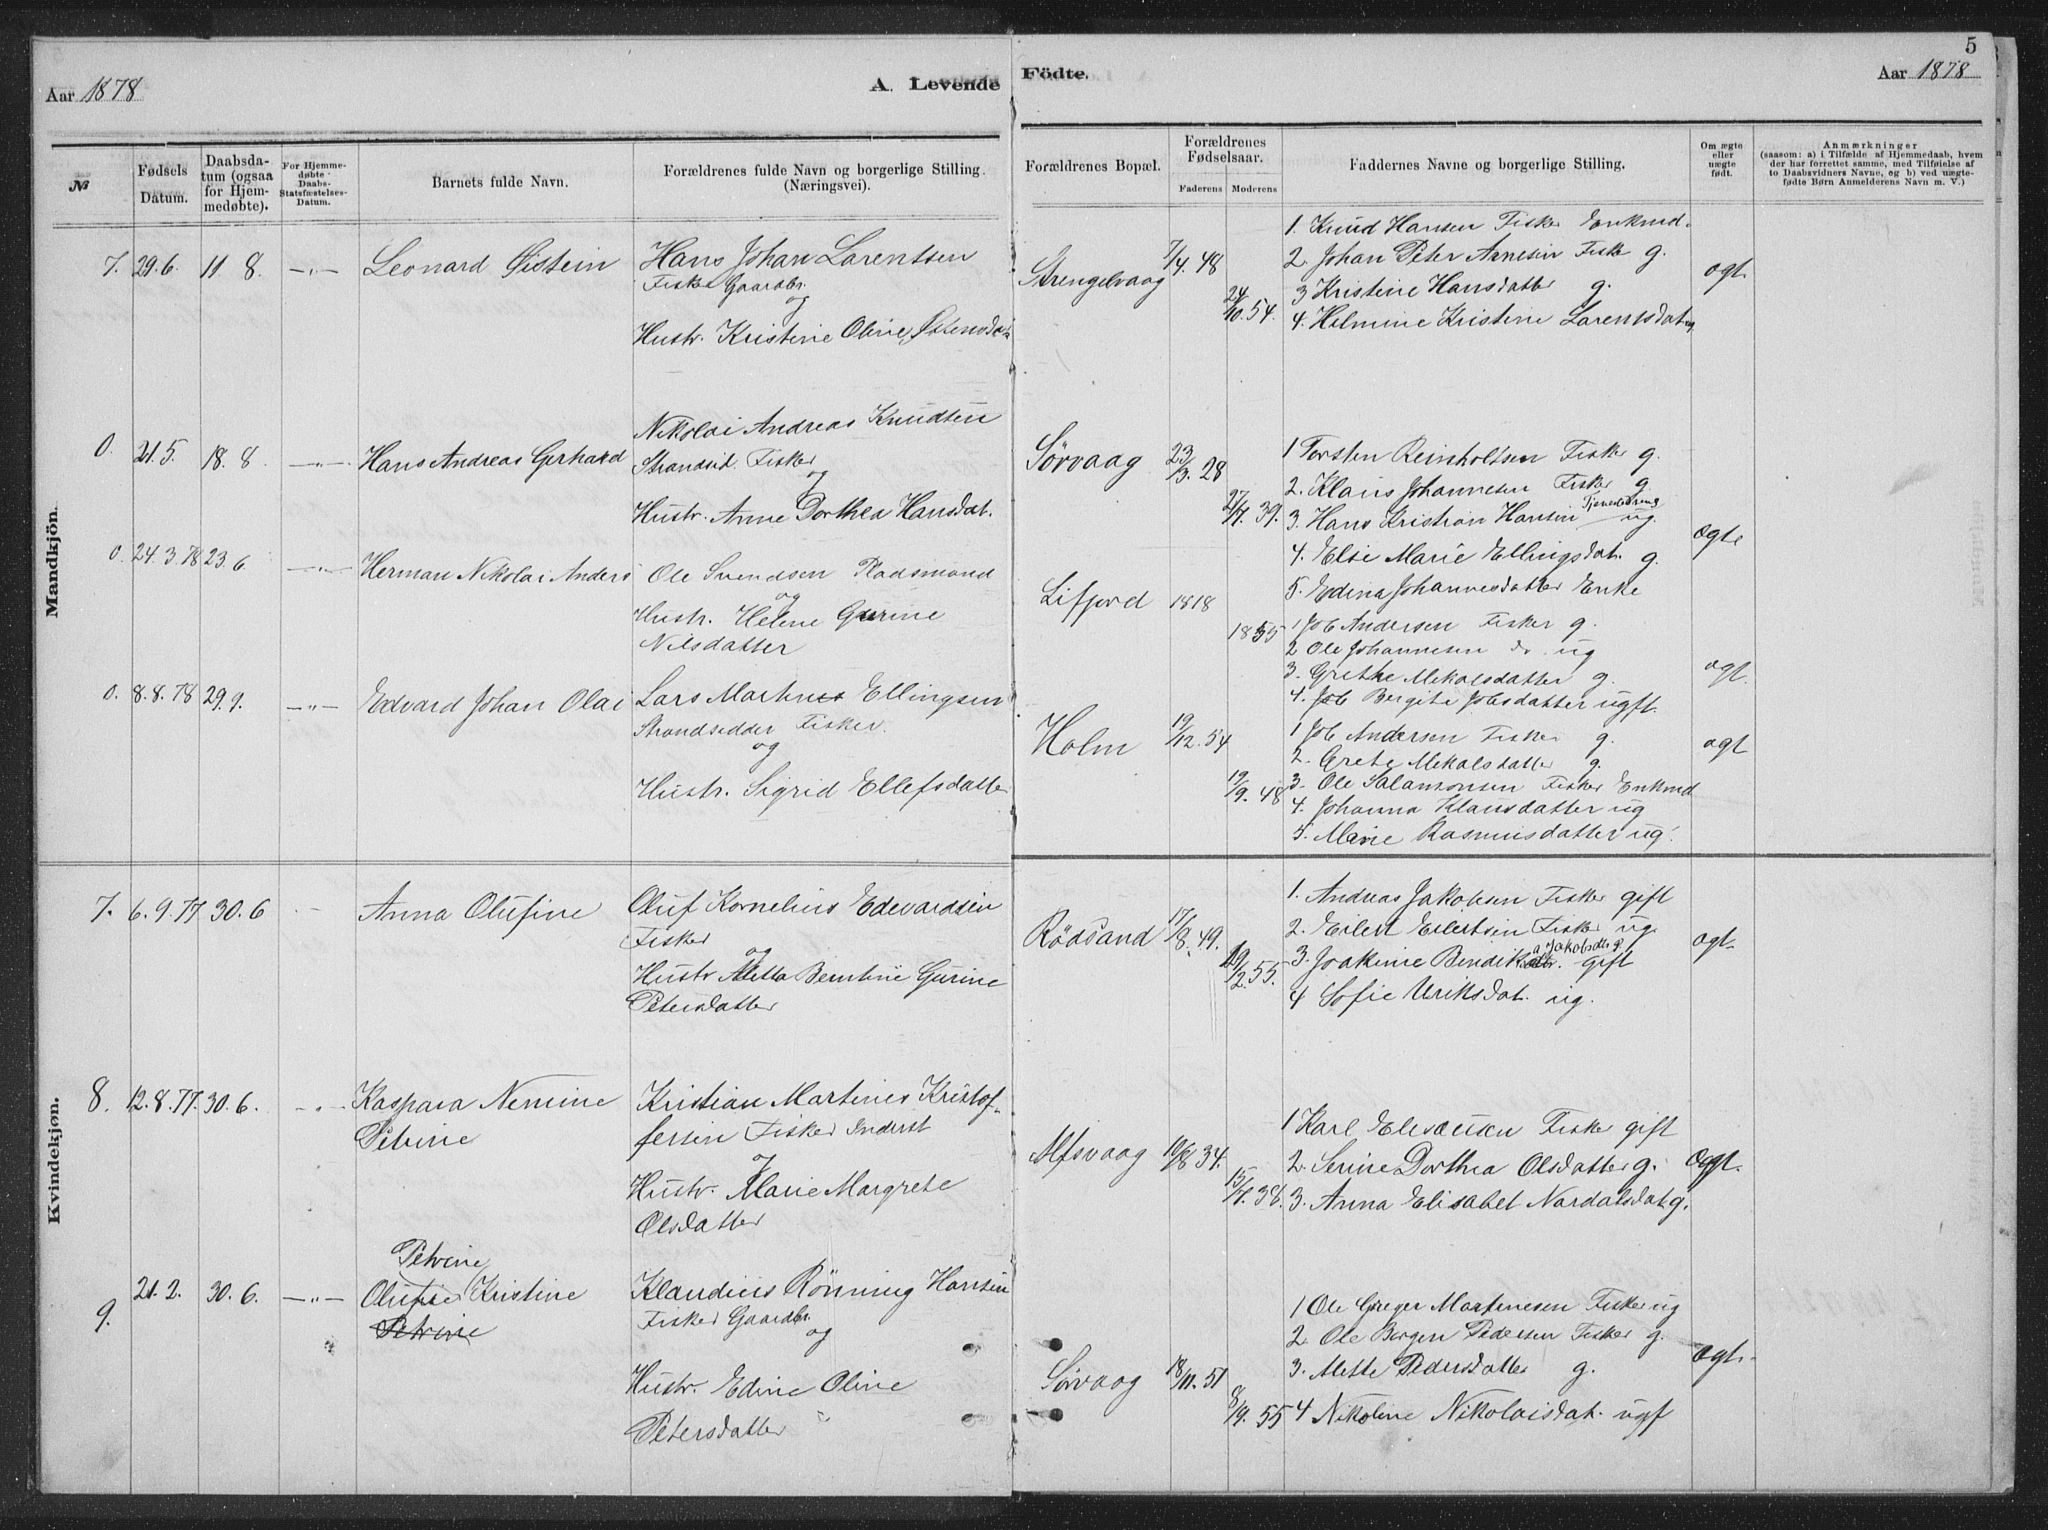 Aar 1878
A. Levende Födte.
5
Aar 1878
№
Födsels Datum.
Daabsdatum (ogsaa for Hjemmedöbte).
For Hjemmedöbte Daabs-Statsfæstelses-Datum.
Barnets fulde Navn.
Forældrenes fulde Navn og borgerlige Stilling. (Næringsvei).
Forældrenes Bopæl.
Forældrenes Fødselsaar.
Faderens
Moderens
Faddernes Navne og borgerlige Stilling.
Om ægte eller uægte födt.
Anmærkninger
(saasom: a) i Tilfælde af Hjemmedaab, hvem der har forrettet samme, med Tilføielse af to Daabsvidners Navne, og b) ved uægtefödte Börn Anmelderens Navn m. V.)
Mandkjön.
7. 29.6. 11 8. —„— Leonard Øistein
Hans Johan Larentsen
Fisker Gaardbr.
og
Hustr. Kristine Oline Østensdat
Strengelvaag 7/4. 48
24/10. 54.
1. Knud Hansen Fisker Enkmd.
2. Johan Peter Arnesen Fisker g.
3 Kristine Hansdatter g.
4. Helmine Kristine Larentsdat ug
ægt
0. 21.5. 18. 8 —„— Hans Andreas Gerhard
Nikolai Andreas Knudsen
Strandsid. Fisker
og
Hustr. Anne Dorthea Hansdat.
Sørvaag 23/3. 28
27/7. 39.
1 Torsten Reinholtsen Fisker g.
2. Klaus Johannesen Fisker g
3. Hans Kristian Hansen Tjenestedreng ug.
4. Else Marie Ellingsdat. g.
5. Edina Johannesdatter Enke
ægte
0. 24.3.78 23.6 —„— Herman Nikolai Anders
Ole Svendsen Pladsmand
og
Hustr. Helene Gurine
Nilsdatter
Lifjord 1818
1835
1 Job Andersen Fisker g.
2 Ole Johannesen do. ug
3. Grethe Mekalsdatter g.
4. Job Bergite Jobsdatter ugft.
ægt.
0. 8.8.78 29.9. —„— Edvard Johan Olai
Lars Martines Ellingsen
Strandsedder Fisker.
og
Hustr. Sigrid Ellefsdatter
Holm 19/12. 54
19/9. 48
1 Job Andersen Fisker g.
2. Grete Mekalsdatter g.
3. Ole Salamonsen Fisker Enkmd
4. Johanna Klausdatter ug
5. Marie Rasmusdatter ug.
ægt
Kvindekjön.
7. 6.9.77 30.6 Anna Olufine
Oluf Kornelius Edevardsen
Fisker
og
Hustr Mette Berntine Gurine
Petersdatter
Rödsand 17/8. 49.
19/2. 55.
1. Andreas Jakobsen Fisker gift
2. Eilert Eilertsen Fisker ug.
3. Joakine Bendik Jakobsdtr g. gift
4 Sofie Uriksdat. ug.
ægt.
8. 12.8.77. 30.6. —„— Kaspara Nemine
Petrine
Kristian Martines Kristof-
fersen Fisker Inderst
og
Hustr. Marie Margrete
Olsdatter
Alfsvaag 10/8 34.
1 Karl Eliseusen Fisker gift
2. Serine Dorthea Olsdatter g.
3. Anna Elisabet Nordalsdat g.
ægt.
9. 21.2. 30.6. —„— Petrine
Olufine Kristine
Petrine
Klaudius Rönning Hansen
Fisker Gaardbr.
og
Hustr. Edine Oline
Petersdatter
Sørvaag 18/11. 51
8/9. 55
1 Ole Greger Martinesen Fisker ug
2. Ole Bergen Pedersen Fisker g.
3. Mette Pedersdatter g.
4 Nikoline Nikolaisdat. ugf
ægt.